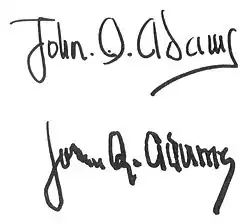 John. Q. Adams
John Q. Adams